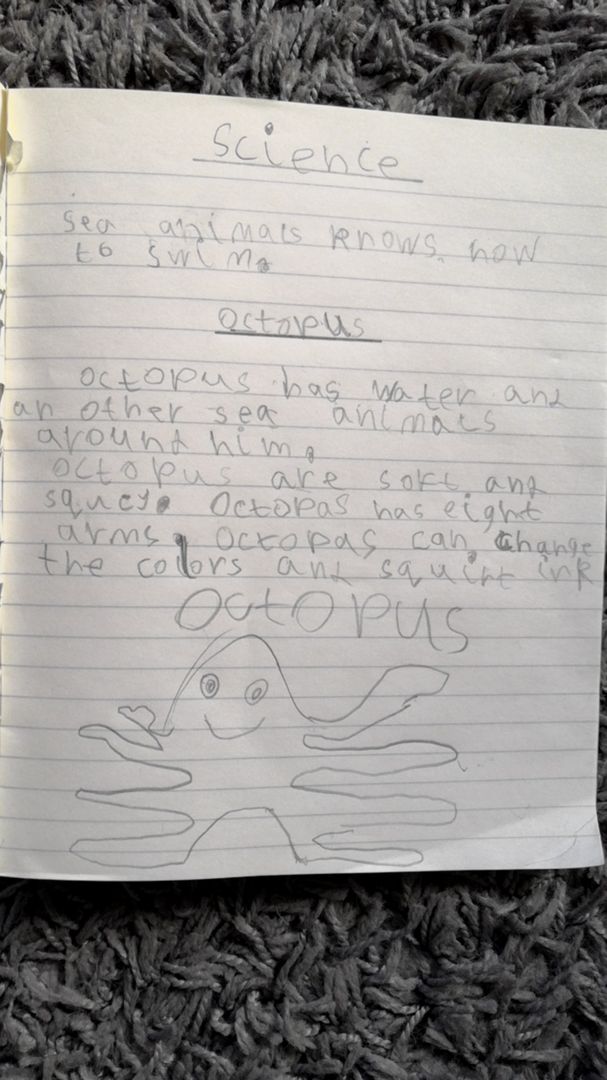 Science
sea animals knows how
to swim.
Octopus
octopus has water and
an other sea animals
around him.
octopus are soft and
squcy. Octopas has eight
arms, octopas can change
the colors and squirt ink
Octopus